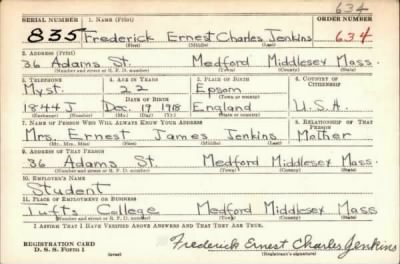 634
SERIAL NUMBER 1. NAME (Print) ORDER NUMBER
835 Frederick Ernest Charles Jenkins 634
(First) (Middle) (Last)
2. ADDRESS (Print)
36 Adams St. Medford Middlesex Mass.
(Number and street or R. F. D. number) (Town) (County) (State)
3. TELEPHONE 4. AGE IN YEARS 5. PLACE OF BIRTH 6. COUNTRY OF CITIZENSHIP
Myst. 22 Epsom
DATE OF BIRTH (Town or county)
1844 J Dec. 19 1918 England U.S.A.
(Exchange) (Number) (Mo.) (Day) (Yr.) (State or country)
7. NAME OF PERSON WHO WILL ALWAYS KNOW YOUR ADDRESS 8. RELATIONSHIP OF THAT PERSON
Mrs. Ernest James Jenkins Mother
(Mr., Mrs., Miss) (First) (Middle) (Last)
9. ADDRESS OF THAT PERSON
36 Adams St. Medford Middlesex Mass.
(Number and street or R. F. D. number) (Town) (County) (State)
10. EMPLOYER'S NAME
Student
11. PLACE OF EMPLOYMENT OR BUSINESS
Tufts College Medford Middlesex Mass
(Number and street or R. F. D. number) (Town) (County) (State)
I AFFIRM THAT I HAVE VERIFIED ABOVE ANSWERS AND THAT THEY ARE TRUE.
REGISTRATION CARD
D. S. S. FORM 1
(over)
Frederick Ernest Charles Jenkins
(Registrant's signature)